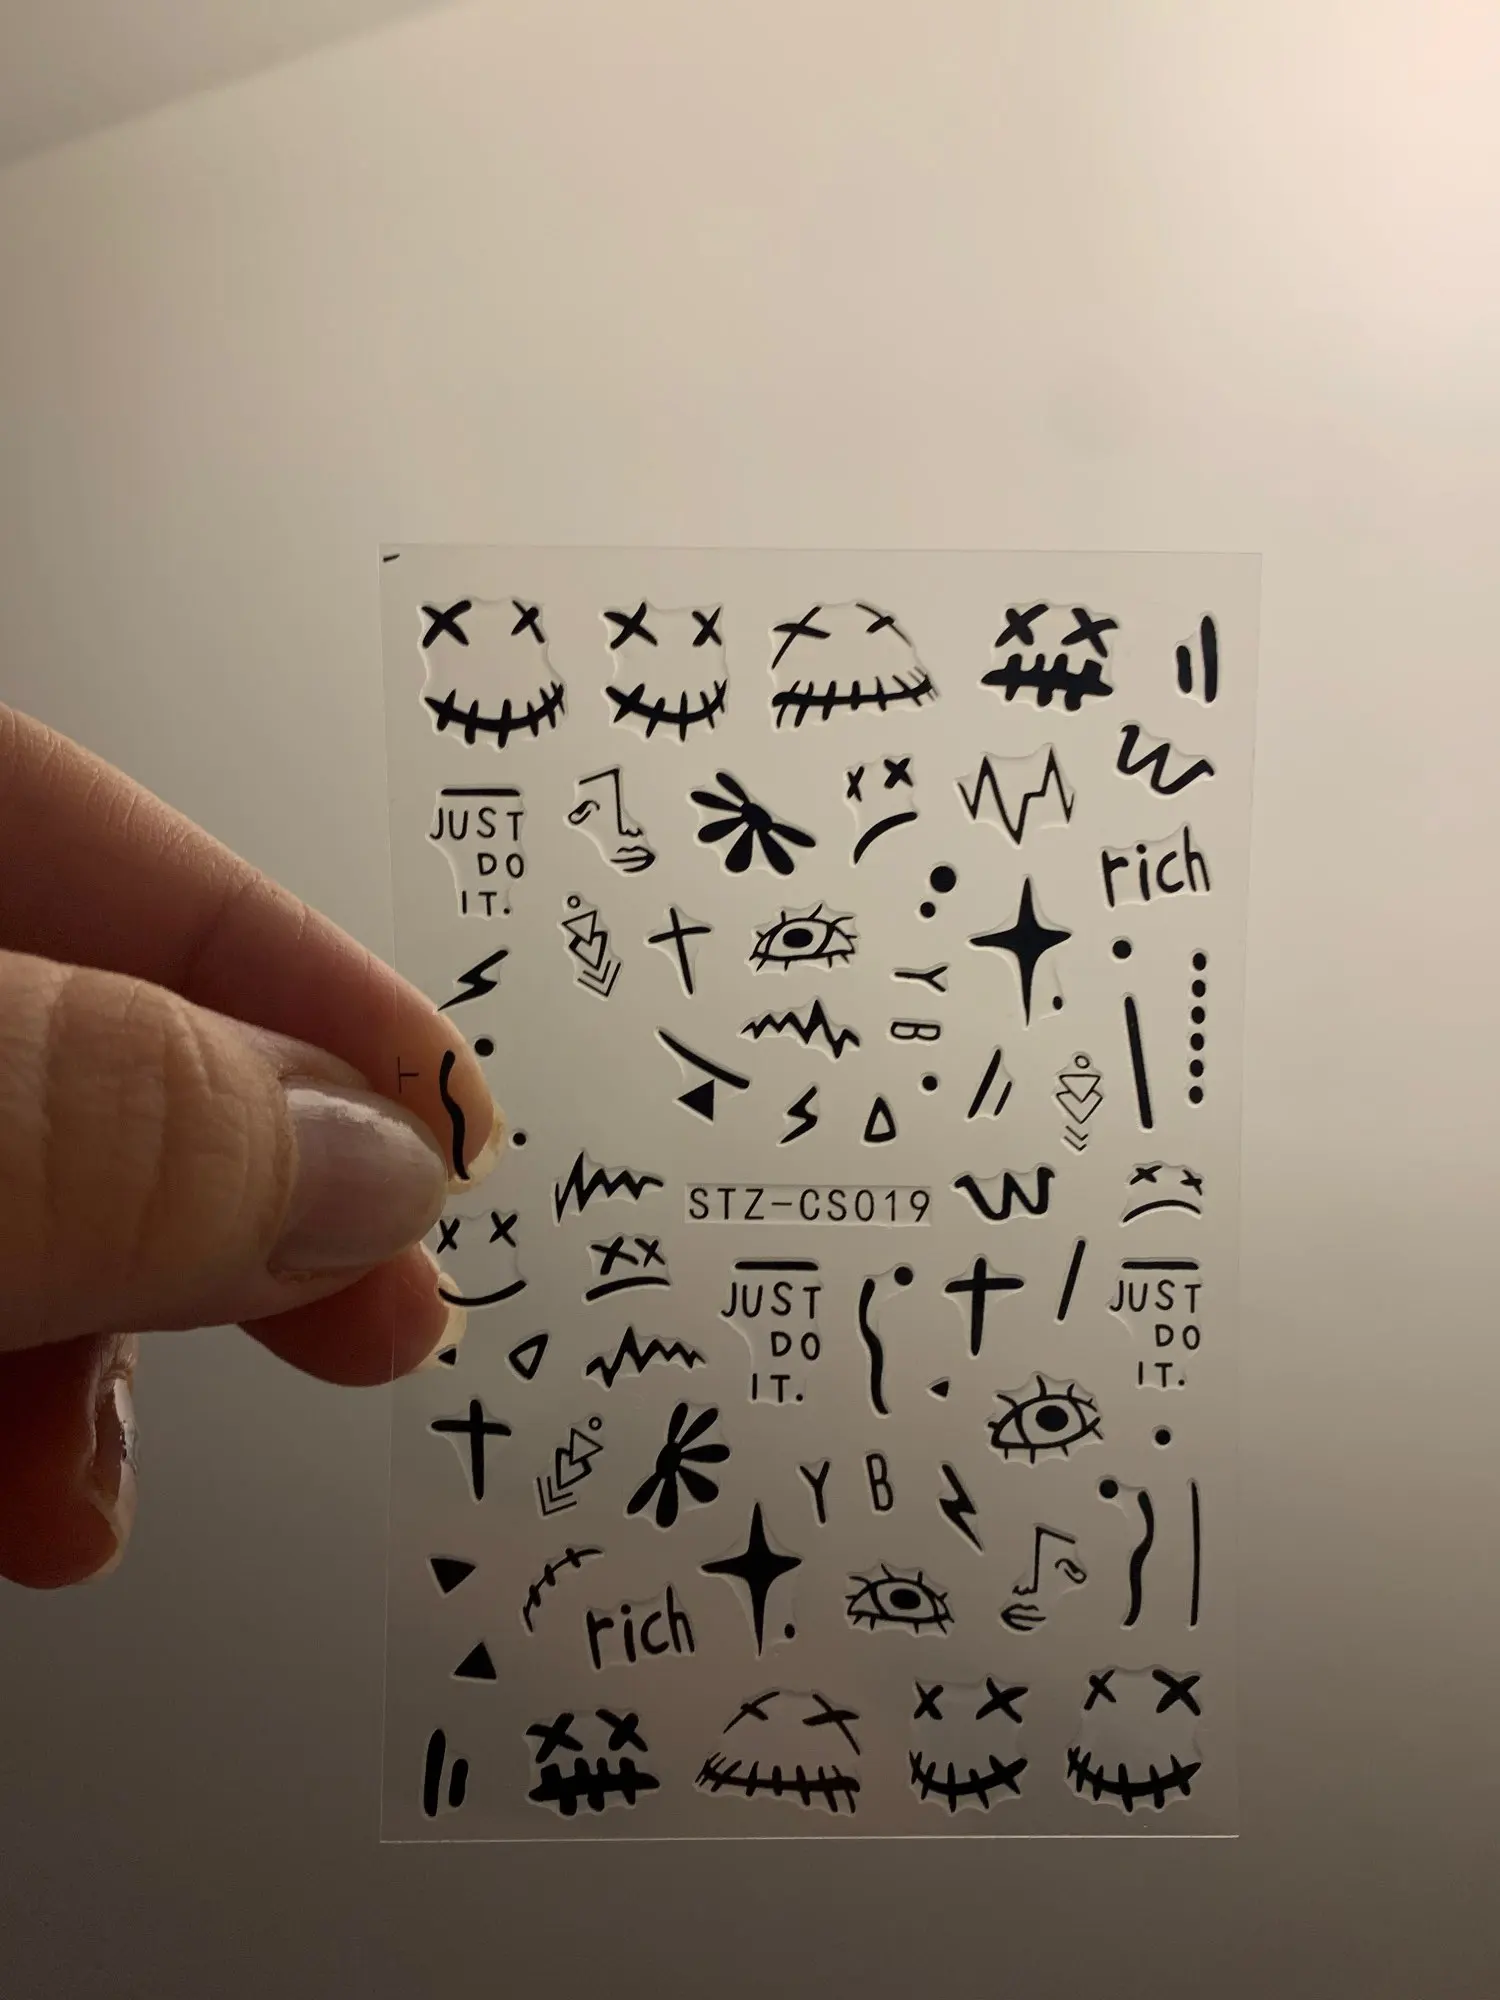 JUST
DO
IT.
rich
Y
B
STZ-CS019
JUST
DO
IT.
JUST
DO
IT.
Y B
rich